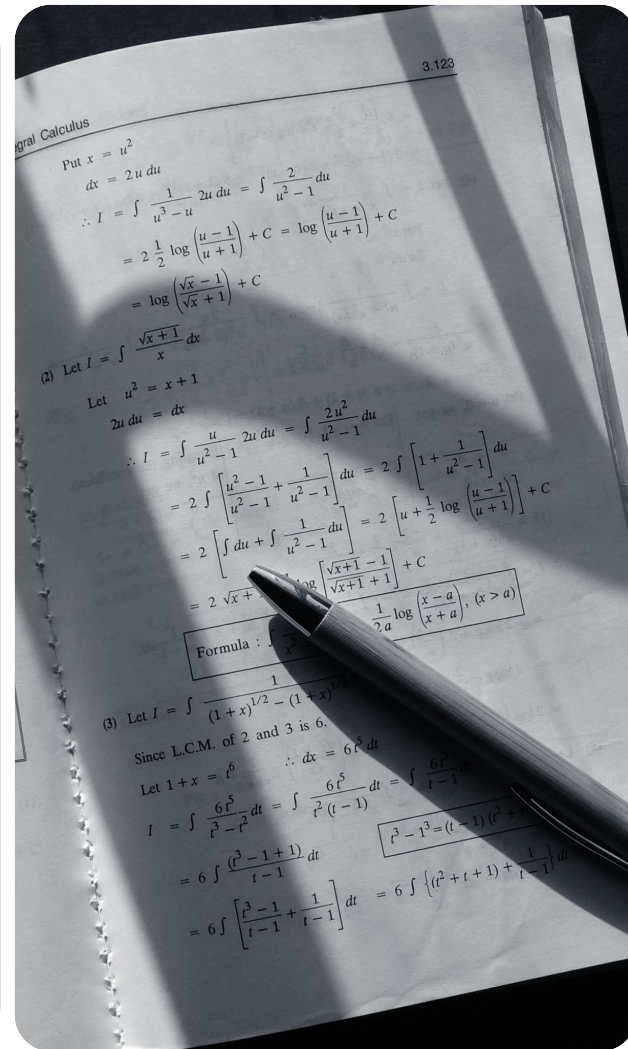 3.123
gral Calculus
Put x = u²
dx = 2u du
∴ I = ∫ 1/(u³ − u) 2u du = ∫ 2/(u² − 1) du
= 2 1/2 log ((u − 1)/(u + 1)) + C = log ((u − 1)/(u + 1)) + C
= log ((√x − 1)/(√x + 1)) + C
(2) Let I = ∫ √(x + 1)/x dx
Let u² = x + 1
2u du = dx
∴ I = ∫ u/(u² − 1) 2u du = ∫ 2u²/(u² − 1) du
= 2 ∫ [(u² − 1)/(u² − 1) + 1/(u² − 1)] du = 2 ∫ [1 + 1/(u² − 1)] du
= 2 [∫ du + ∫ 1/(u² − 1) du] = 2 [u + 1/2 log ((u − 1)/(u + 1))] + C
= 2 √x + log [(√(x+1) − 1)/(√(x+1) + 1)] + C
Formula : ∫ 1/2a log ((x − a)/(x + a)), (x > a)
(3) Let I = ∫ 1/((1 + x)^1/2 − (1 + x)
Since L.C.M. of 2 and 3 is 6.
Let 1 + x = t⁶ ∴ dx = 6t⁵ dt
I = ∫ 6t⁵/(t³ − t²) dt = ∫ 6t⁵/(t² (t − 1)) dt = ∫ 6t/(t − 1)
t³ − 1³ = (t − 1) (t² +
= 6 ∫ (t³ − 1 + 1)/(t − 1) dt
= 6 ∫ [(t³ − 1)/(t − 1) + 1/(t − 1)] dt = 6 ∫ {(t² + t + 1) + 1/(t − 1)} dt